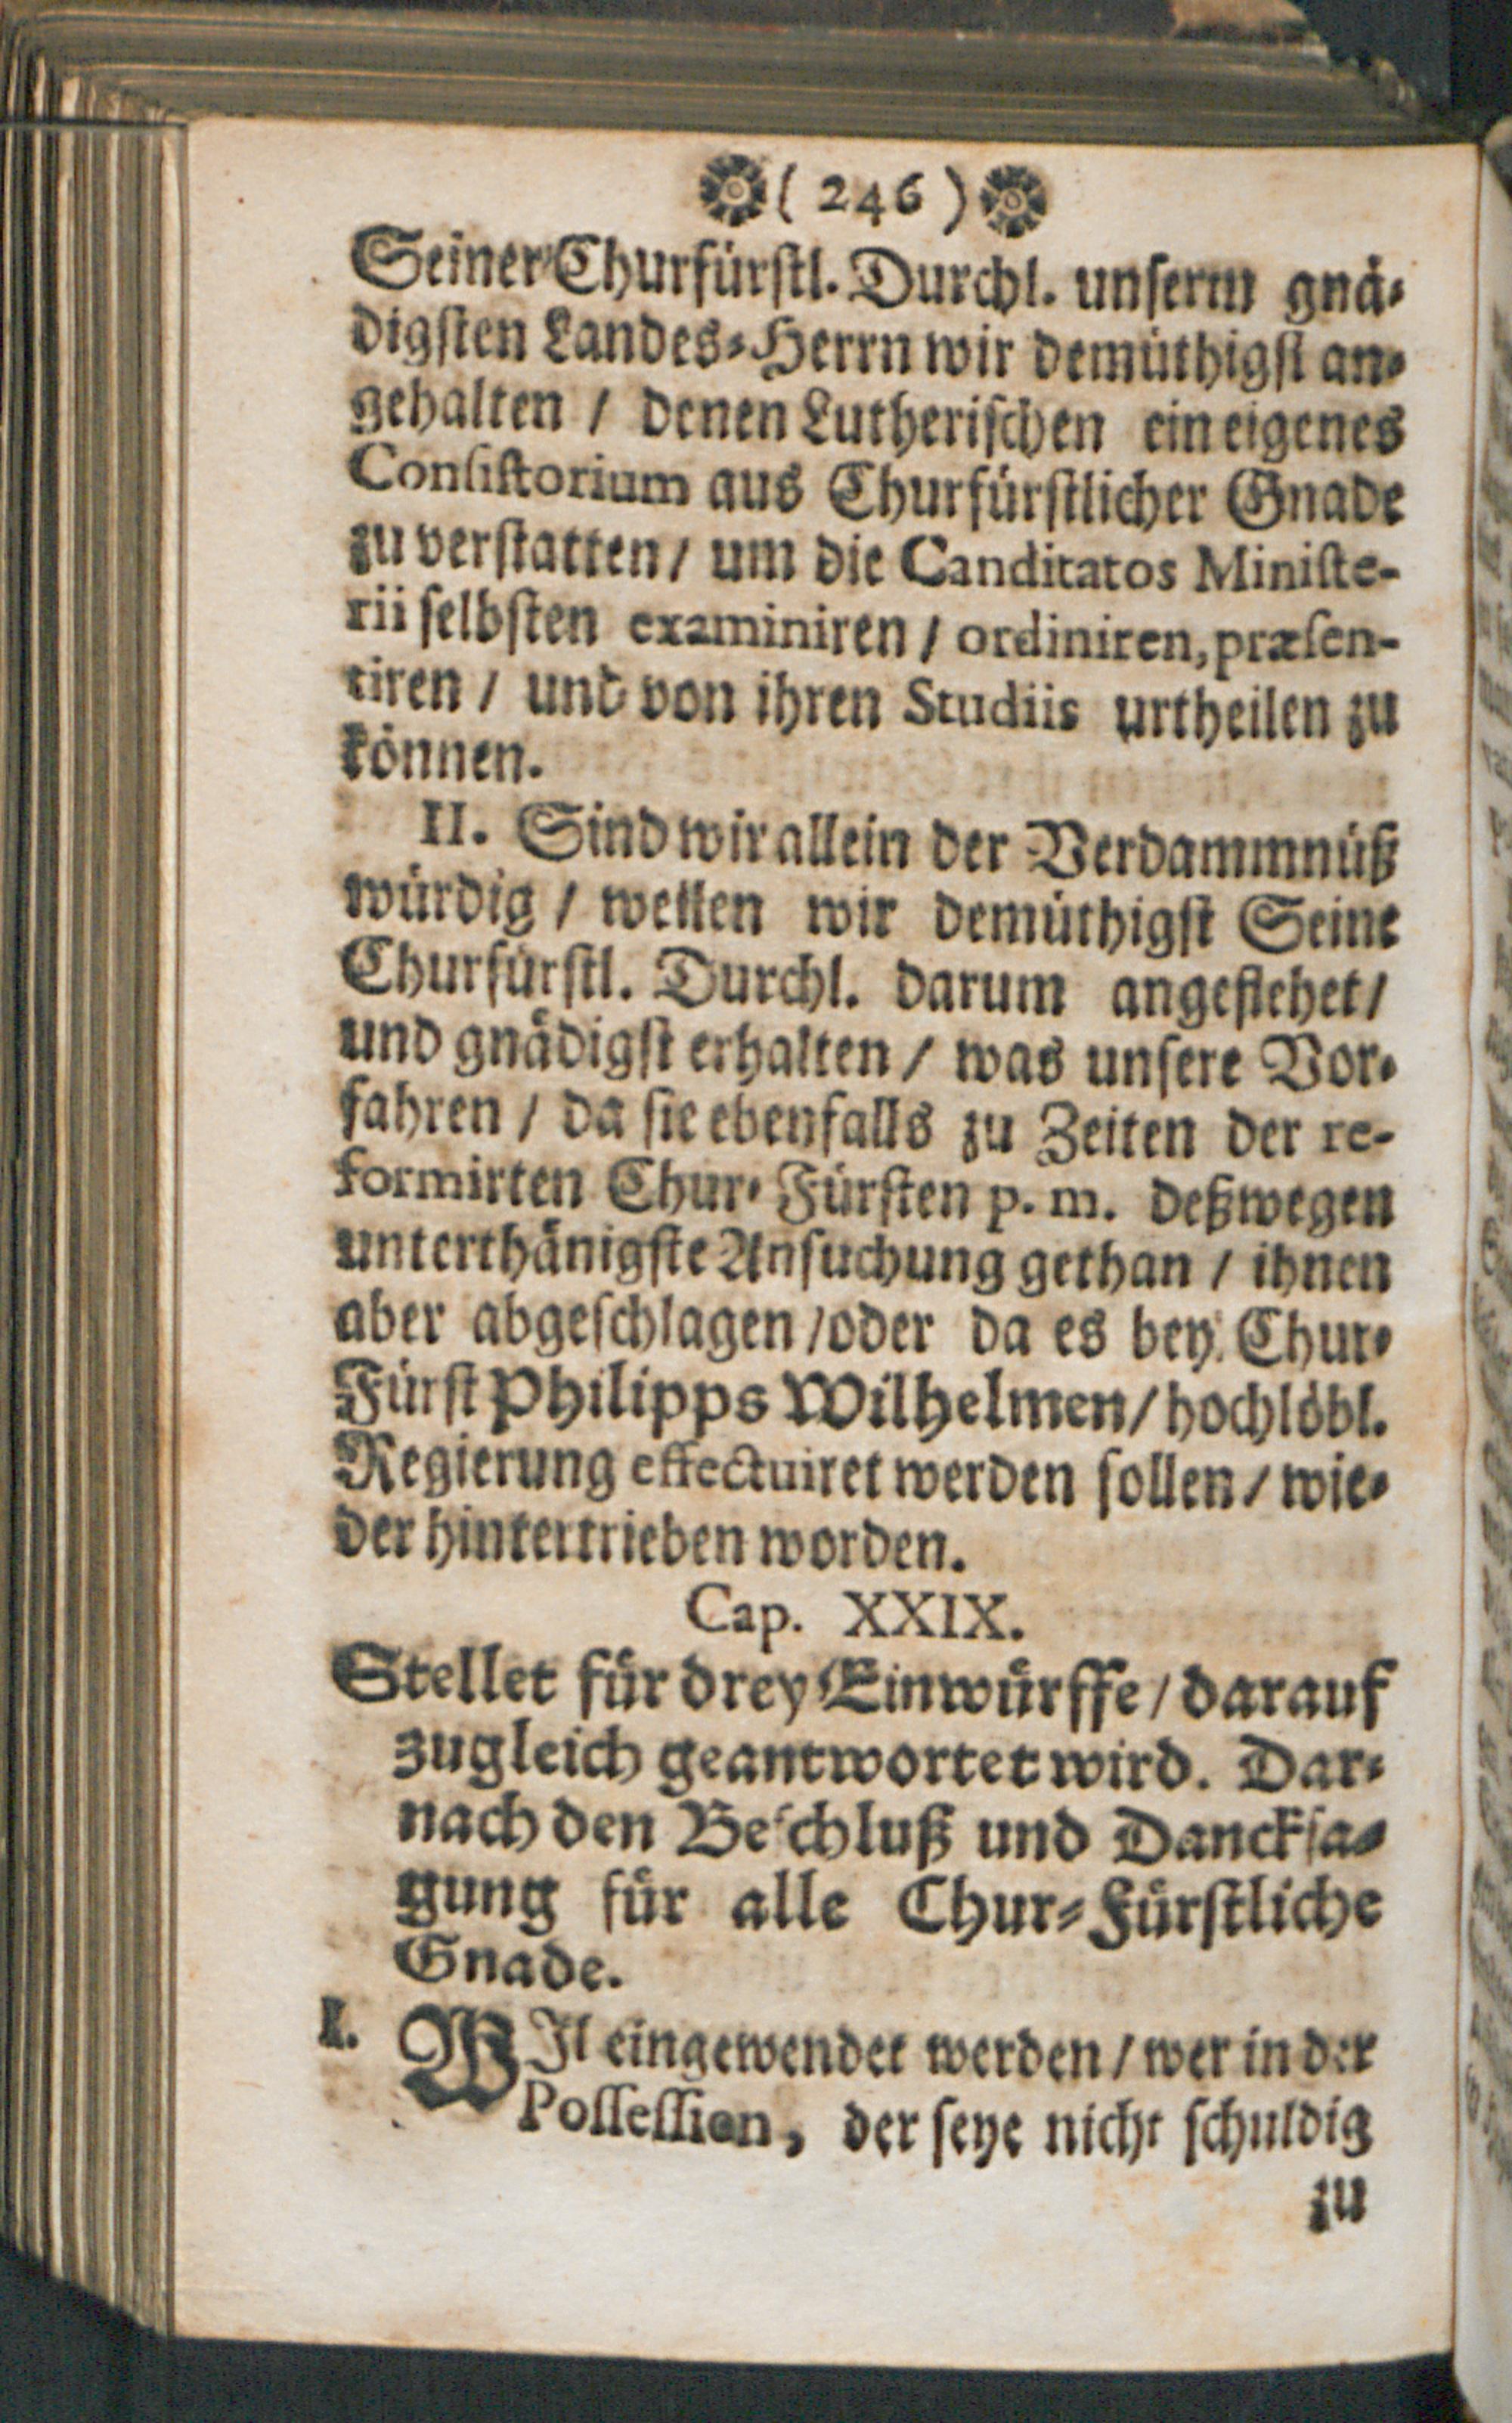 ( 246 )
Seiner Churfürstl. Durchl. unserm gnä-
digsten Landes-Herrn wir demüthigst an-
gehalten / denen Lutherischen ein eigenes
Consistorium aus Churfürstlicher Gnade
zu verstatten / um die Canditatos Ministe-
rii selbsten examiniren / ordiniren, præsen-
tiren / und von ihren Studiis urtheilen zu
können.
II. Sind wir allein der Verdammnüß
würdig / weilen wir demüthigst Seine
Churfürstl. Durchl. darum angeflehet /
und gnädigst erhalten / was unsere Vor-
fahren / da sie ebenfalls zu Zeiten der re-
formirten Chur-Fürsten p. m. deßwegen
unterthänigste Ansuchung gethan / ihnen
aber abgeschlagen / oder da es bey Chur-
Fürst Philipps Wilhelmen / hochlöbl.
Regierung effectuiret werden sollen / wie-
der hintertrieben worden.
Cap. XXIX.
Stellet für drey Einwürffe / darauf
zugleich geantwortet wird. Dar-
nach den Beschluß und Dancksa-
gung für alle Chur-Fürstliche
Gnade.
I. WIl eingewendet werden / wer in der
Possession, der seye nicht schuldig
zu